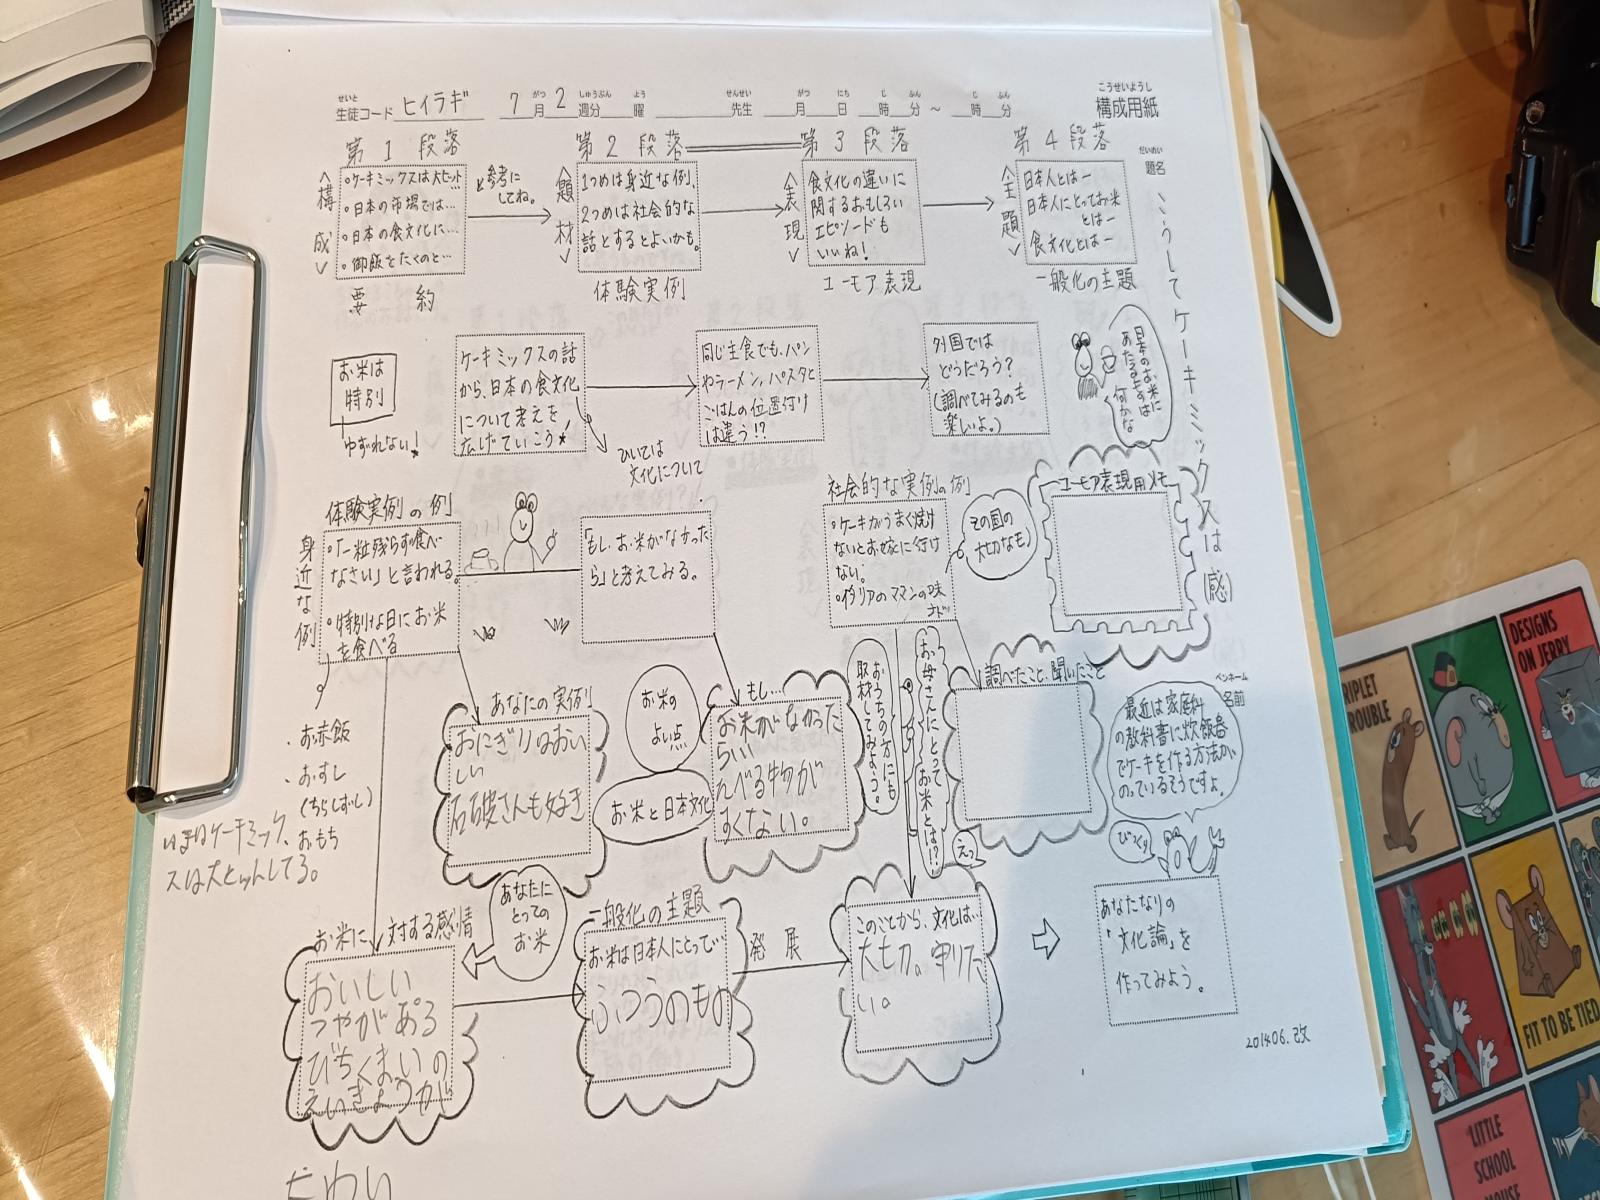 せいと
生徒コード ヒイラギ 7月2週分 曜 先生 月 日 時 分 ~ 時 分
がつ しゅうぶん よう せんせい がつ にち じ ふん じ ふん
こうせいようし
構成用紙
第1段落
第2段落
第3段落
第4段落
だいめい
題名
こうしてケーキミックスは(感)
<構成>
・ケーキミックスは大ヒット…
・日本の市場では…
・日本の食文化に…
・御飯をたくのと…
要約
と参考に
してね。
<題材>
1つめは身近な例、
2つめは社会的な
話とするとよいかも。
体験実例
<表現>
食文化の違いに
関するおもしろい
エピソードも
いいね!
ユーモア表現
<主題>
日本人とはー
日本人にとってお米
とはー
食文化とはー
一般化の主題
お米は
特別
ゆずれない!
ケーキミックスの話
から、日本の食文化
について考えを
広げていこう
ひいては
文化について
同じ主食でも、パン
やラーメン、パスタと
ごはんの位置付け
は違う!?
外国では
どうだろう?
(調べてみるのも
楽しいよ。)
日本のお米に
あたるものは
何かな
体験実例の例
身近な例
・「一粒残らず食べ
なさい」と言われる。
・特別な日にお米
を食べる
・お赤飯
・おすし
(ちらしずし)
おもち
「もし、お米がなかった
ら」と考えてみる。
社会的な実例の例
・ケーキがうまく焼け
ないとお嫁に行け
ない。
・イタリアのママンの味
など
その国の
大切なモノ
ユーモア表現用メモ
あなたの実例
おにぎりはおい
しい
石破さんも好き
お米の
よい点
お米と日本文化
もし…
お米がなかった
らい
たべる物が
すくない。
おうちの方にも
取材してみよう。
お母さんにとって
お米とは!?
えっ
調べたこと・聞いたこと
ペンネーム
名前
最近は家庭科
の教科書に炊飯器
でケーキを作る方法が
のっているそうですよ。
びっくり
いまはケーキミック
スは大ヒットしてる。
お米に対する感情
おいしい
つやがある
びちくまいの
えいきょうが
たかい
あなたに
とっての
お米
一般化の主題
お米は日本人にとって…
ふつうのもの
発展
このことから、文化は…
大切。守りた
い。
あなたなりの
「文化論」を
作ってみよう。
201406.改
TRIPLET
TROUBLE
DESIGNS
ON JERRY
FIT TO BE TIED
LITTLE
SCHOOL